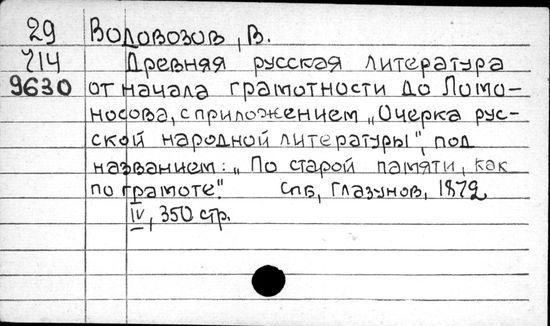 29 Водовозов, В.
714 Древняя русская литература
9630 от начала грамотности до Ломо-
носова, с приложением „Очерка рус-
ской народной литературы", под
названием: „По старой памяти, как
по грамоте." Спб, Глазунов, 1872
IV, 350 стр.